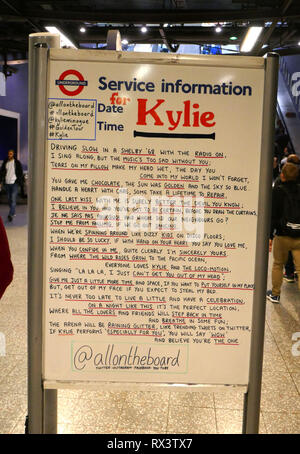 UNDERGROUND
Service information
@allontheboard
@allontheboard
@kylieminogue
#GoldenTour
#Kylie
Date for Kylie
Time
DRIVING SLOW IN A SHELBY '68 WITH THE RADIO ON,
I SING ALONG, BUT THE MUSIC'S TOO SAD WITHOUT YOU;
TEARS ON MY PILLOW MAKE MY HEAD WET, THE DAY YOU
COME INTO MY WORLD I WON'T FORGET,
YOU GAVE ME CHOCOLATE, THE SUN WAS GOLDEN AND THE SKY SO BLUE.
HANDLE A HEART WITH CARE, SOME TAKE A LIFETIME TO REPAIR,
ONE LAST KISS WITH ME IS SURELY BETTER THE DEVIL YOU KNOW;
I BELIEVE IN YOU AND YOU'LL GET IT FOR CERTAIN, BEFORE YOU DRAW THE CURTAINS,
JE NE SAIS PAS POURQUOI,
STOP ME FROM
WHEN WE'RE SPINNING AROUND LIKE DIZZY KIDS ON DISCO FLOORS,
I SHOULD BE SO LUCKY IF WITH HAND ON YOUR HEART YOU SAY YOU LOVE ME,
WHEN YOU CONFIDE IN ME, QUITE CLEARLY I'M SINCERELY YOURS.
FROM WHERE THE WILD ROSES GROW TO THE PACIFIC OCEAN,
EVERYONE LOVES KYLIE AND THE LOCO-MOTION,
SINGING "LA LA LA, I JUST CAN'T GET YOU OUT OF MY HEAD".
GIVE ME JUST A LITTLE MORE TIME AND SPACE, IF YOU WANT TO PUT YOURSELF IN MY PLACE
BUT, GET OUT OF MY FACE IF YOU EXPECT TO STEAL MY BED.
IT'S NEVER TOO LATE TO LIVE A LITTLE AND HAVE A CELEBRATION,
ON A NIGHT LIKE THIS IT'S THE PERFECT LOCATION;
WHERE ALL THE LOVERS AND FRIENDS WILL STEP BACK IN TIME
AND BREATHE IN SOME FUN;
THE ARENA WILL BE RAINING GLITTER, LIKE TRENDING TWEETS ON TWITTER,
IF KYLIE PERFORMS 'ESPECIALLY FOR YOU', YOU WILL SAY 'WOW'
AND BELIEVE YOU'RE THE ONE
@allontheboard
TWITTER INSTAGRAM FACEBOOK YOU TUBE